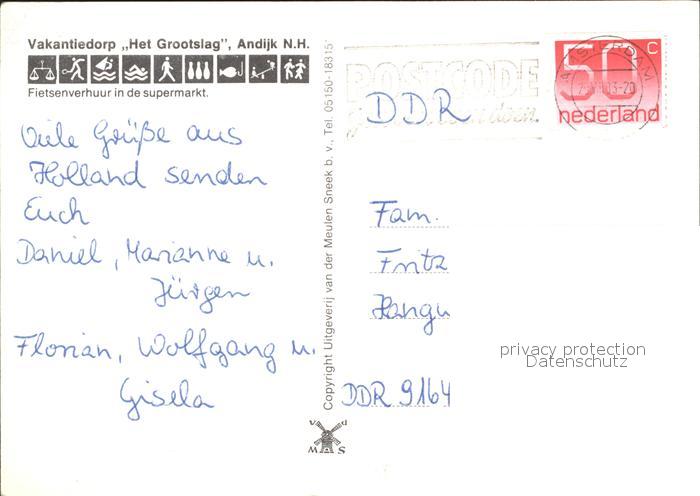 Vakantiedorp „Het Grootslag", Andijk N.H.
Fietsenverhuur in de supermarkt.
Viele Grüße aus
Holland senden
Euch
Daniel, Marianne u.
Jürgen
Florian, Wolfgang u.
Gisela
Copyright Uitgeverij van der Meulen Sneek b. v., Tel. 05150-18315
v d
M S
POSTCODE
DDR
50 c
nederland
AMSTERDAM
Fam.
Fritz
DDR 9164
privacy protection
Datenschutz